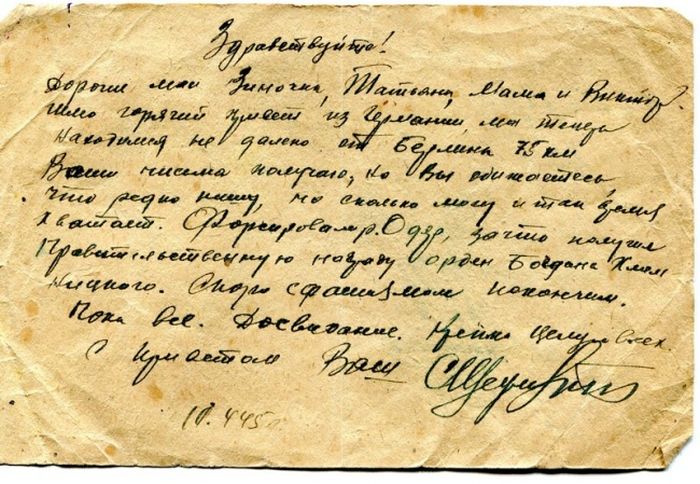 Здравствуйте!
Дорогие мои Зиночка, Татьяна, Мама и Виктор.
Шлю горячий привет из Германии, мы теперь
находимся не далеко от Берлина 75 км
Ваши письма получаю, но Вы обижаетесь,
что редко пишу, но сколько могу и так время
хватает. Форсировал р. Одер, за что получил
Правительственную награду орден Богдана Хмель
ницкого. Скоро с фашизмом покончим.
Пока все. Досвидание. Крепко целую всех
С приветом Ваш
10.4 45г